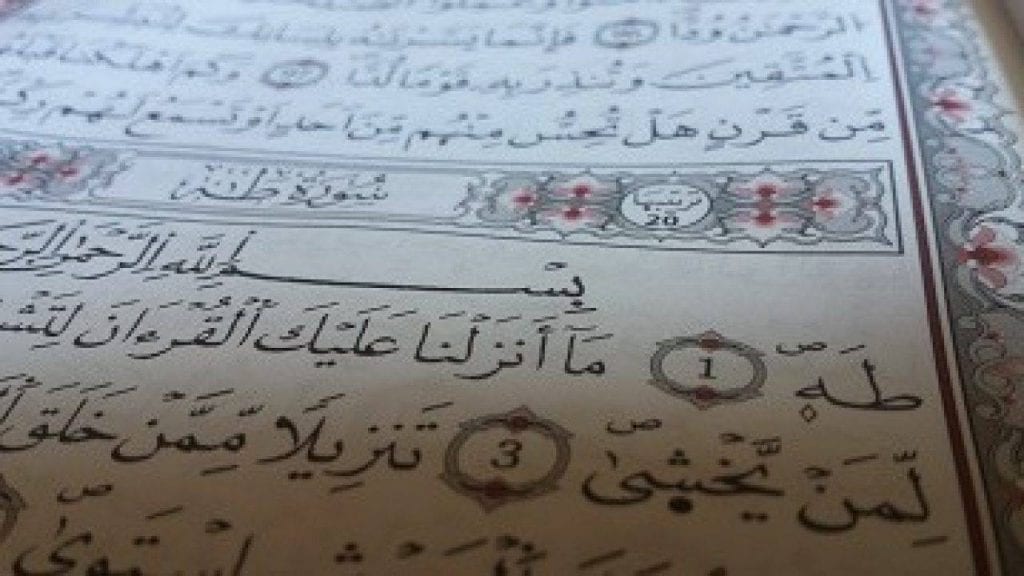 الرَّحْمَٰنُ وُدًّا فَإِنَّمَا يَسَّرْنَاهُ بِلِسَانِكَ
الْمُتَّقِينَ وَتُنذِرَ بِهِ قَوْمًا لُّدًّا 97 وَكَمْ أَهْلَكْنَا قَبْلَهُم
مِّن قَرْنٍ هَلْ تُحِسُّ مِنْهُم مِّنْ أَحَدٍ أَوْ تَسْمَعُ لَهُمْ
سُورَةُ طه ترتيبها 20
بِسْمِ اللَّهِ الرَّحْمَٰنِ
طه 1 مَآ أَنزَلْنَا عَلَيْكَ الْقُرْءَانَ
لِّمَنْ يَّخْشَىٰ 3 تَنزِيلًا مِّمَّنْ خَلَقَ
اسْتَوَىٰ